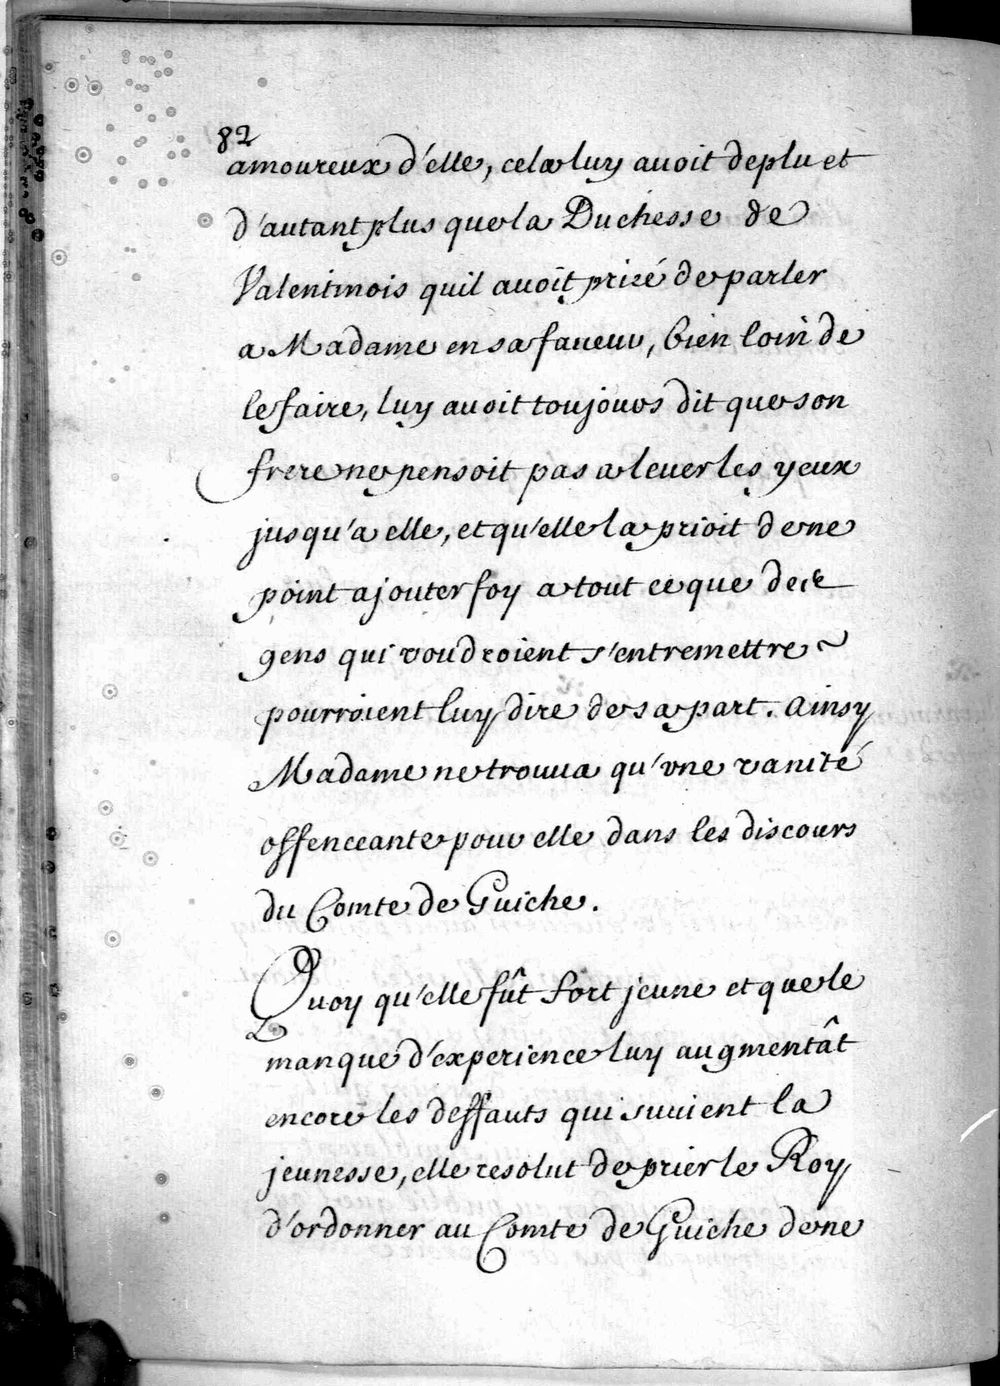 82
amoureux d'elle, cela luy auoit deplu et
d'autant plus que la Duchesse de
Valentinois quil auoit prié de parler
a Madame en sa faueur, bien loin de
le faire, luy auoit toujours dit que son
frere ne pensoit pas a leuer les yeux
jusqu'a elle, et qu'elle la prioit de ne
point ajouter foy a tout ce que des
gens qui voudroient s'entremettre
pourroient luy dire de sa part. Ainsy
Madame ne trouua qu'vne vanité
offenceante pour elle dans les discours
du Comte de Guiche.
Quoy qu'elle fût fort jeune et que le
manque d'experience luy augmentât
encore les deffauts qui suiuent la
jeunesse, elle resolut de prier le Roy
d'ordonner au Comte de Guiche de ne